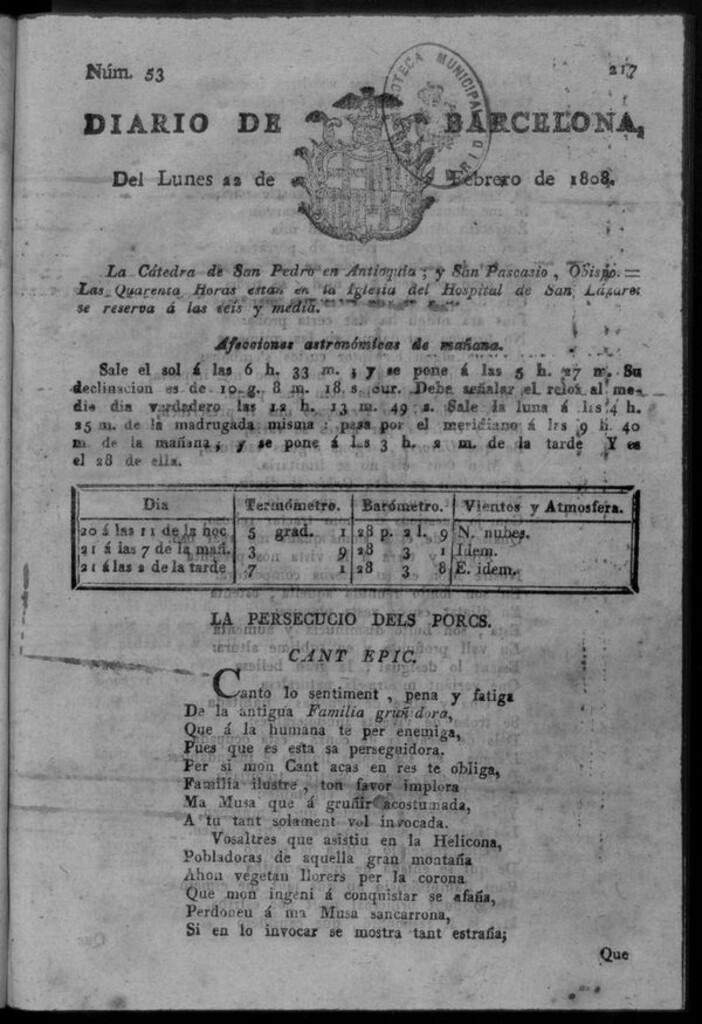 Núm. 53 217
DIARIO DE BARCELONA,
Del Lunes 22 de Febrero de 1808.
La Cátedra de San Pedro en Antioquía; y San Pascasio, Obispo. =
Las Quarenta Horas están en la Iglesia del Hospital de San Lázaro:
se reserva á las seis y media.
Afecciones astronómicas de mañana.
Sale el sol á las 6 h. 33 m.; y se pone á las 5 h. 27 m. Su
declinacion es de 10 g. 8 m. 18 s. our. Debe señalar el relox al me-
dio dia verdadero las 12 h. 13 m. 49 s. Sale la luna á las 4 h.
25 m. de la madrugada misma: pasa por el meridiano á las 9 h. 40
m. de la mañana; y se pone á las 3 h. 2 m. de la tarde Y es
el 28 de ella.
Dia Termómetro. Barómetro. Vientos y Atmosfera.
20 á las 11 de la noc 5 grad. 1 28 p. 2 l. 9 N. nubes.
21 á las 7 de la mañ. 3 9 28 3 1 Idem.
21 á las 2 de la tarde 7 1 28 3 8 E. idem.
LA PERSECUCIO DELS PORCS.
CANT EPIC.
Canto lo sentiment, pena y fatiga
De la antigua Familia gruñidora,
Que á la humana te per enemiga,
Pues que es esta sa perseguidora.
Per si mon Cant acas en res te obliga,
Familia ilustre, ton favor implora
Ma Musa que á gruñir acostumada,
A tu tant solament vol invocada.
Vosaltres que asistiu en la Helicona,
Pobladoras de aquella gran montaña
Ahon vegetan llorers per la corona
Que mon ingeni á conquistar se afaña,
Perdoneu á ma Musa sancarrona,
Si en lo invocar se mostra tant estraña;
Que